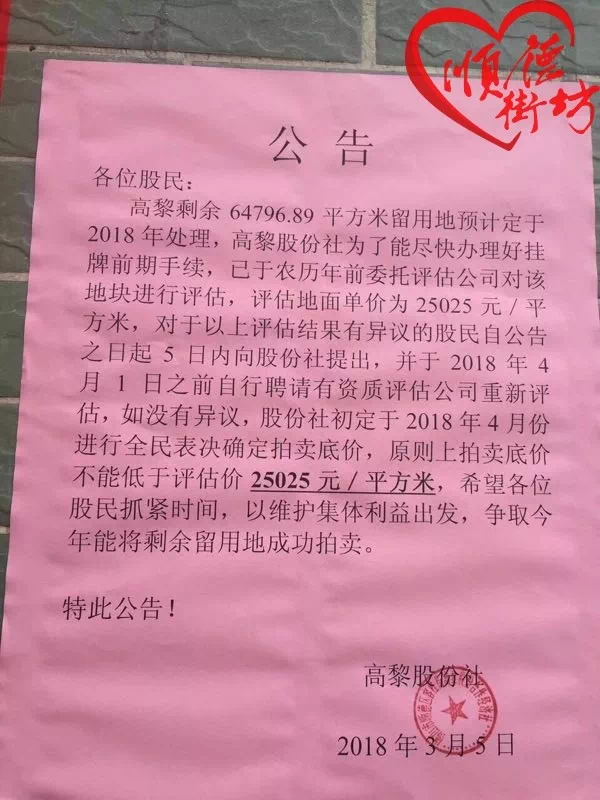 顺德
街坊
公告
各位股民：
高黎剩余 64796.89 平方米留用地预计定于
2018 年处理，高黎股份社为了能尽快办理好挂
牌前期手续，已于农历年前委托评估公司对该
地块进行评估，评估地面单价为 25025 元／平
方米，对于以上评估结果有异议的股民自公告
之日起 5 日内向股份社提出，并于 2018 年 4
月 1 日之前自行聘请有资质评估公司重新评
估，如没有异议，股份社初定于 2018 年 4 月份
进行全民表决确定拍卖底价，原则上拍卖底价
不能低于评估价 25025 元／平方米，希望各位
股民抓紧时间，以维护集体利益出发，争取今
年能将剩余留用地成功拍卖。
特此公告！
高黎股份社
2018 年 3 月 5 日